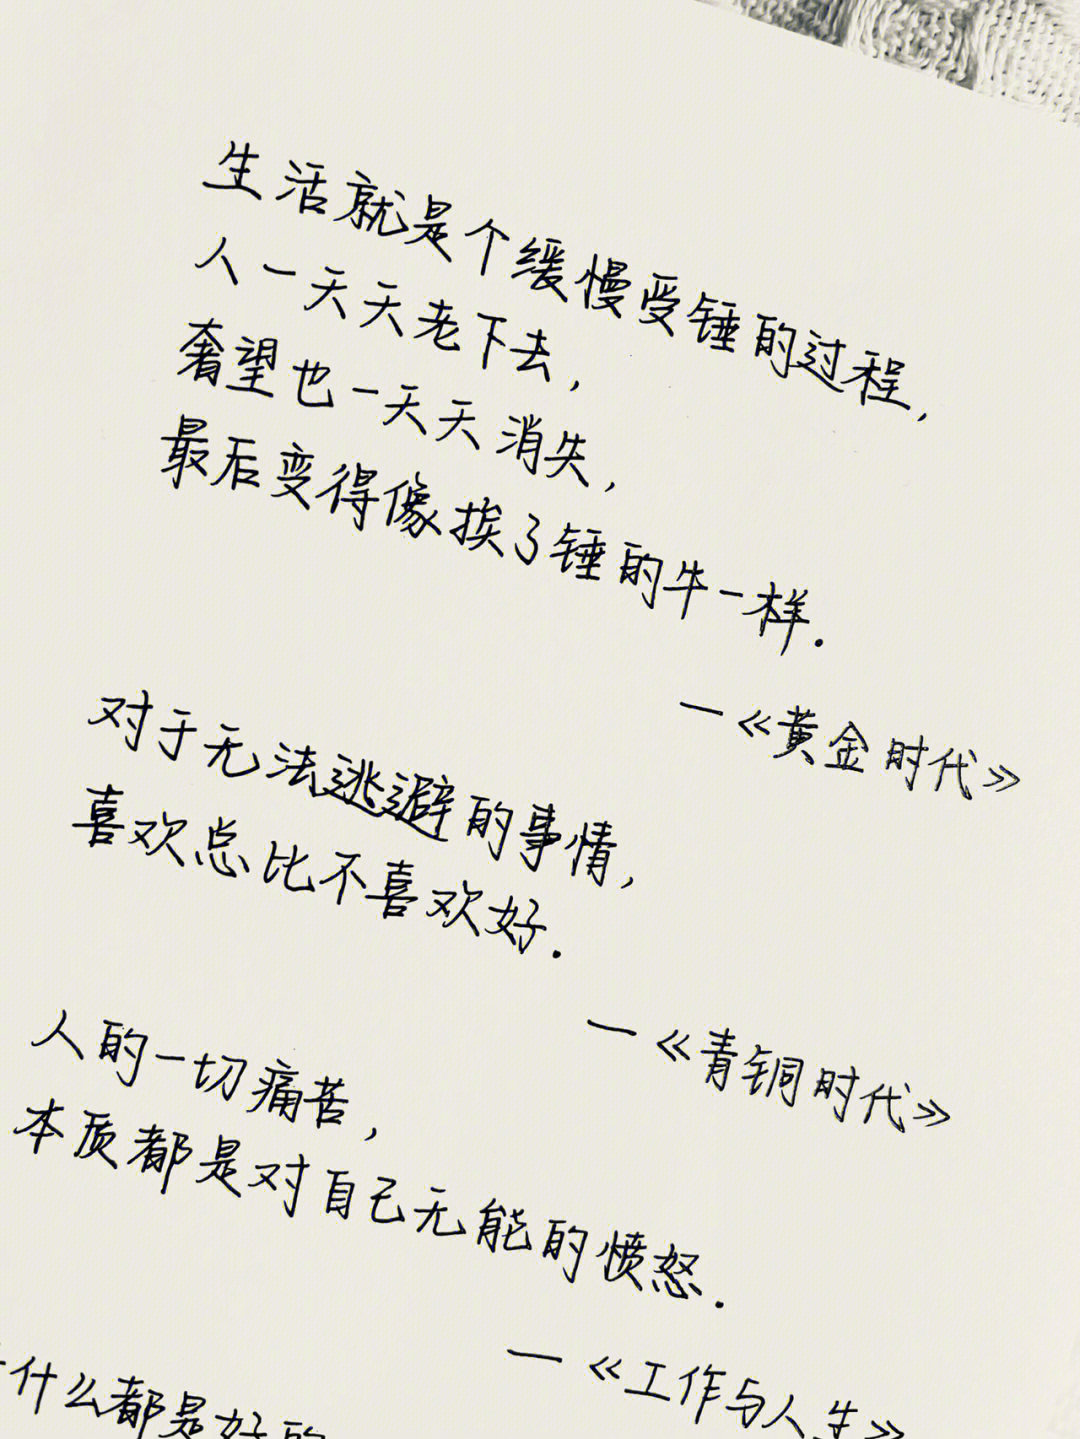 生活就是个缓慢受锤的过程,
人一天天老下去,
奢望也一天天消失,
最后变得像挨了锤的牛一样.
—《黄金时代》
对于无法逃避的事情,
喜欢总比不喜欢好.
—《青铜时代》
人的一切痛苦,
本质都是对自己无能的愤怒.
—《工作与人生》
什么都是好的